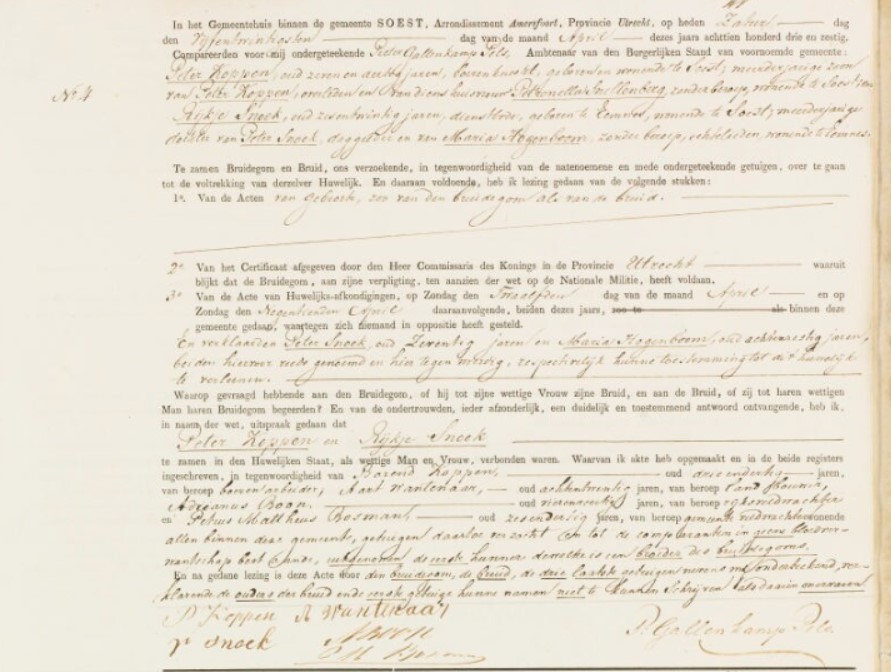 In het Gemeentehuis binnen de gemeente SOEST, Arrondissement Amersfoort, Provincie Utrecht, op heden Zaturdag
den Vijfentwintigsten dag van de maand April dezes jaars achttien honderd drie en zestig.
Compareerden voor mij ondergeteekende Pieter Gallenkamp Pels, Ambtenaar van den Burgerlijken Stand van voornoemde gemeente:
Nº 4
Peter Koppen, oud zeven en dertig jaren, boerenknecht, geboren en wonende te Soest; meerderjarige zoon
van Peter Koppen, overleden en van diens huisvrouw Petronella Smillenberg, zonder beroep, wonende te Soest; en
Rijkje Snoek, oud zesentwintig jaren, dienstbode, geboren te Eemnes, wonende te Soest; meerderjarige
dochter van Peter Snoek, daggelder en van Maria Hogenboom, zonder beroep, echtelieden, wonende te Eemnes.
Te zamen Bruidegom en Bruid, ons verzoekende, in tegenwoordigheid van de natenoemene en mede ondergeteekende getuigen, over te gaan
tot de voltrekking van derzelver Huwelijk. En daaraan voldoende, heb ik lezing gedaan van de volgende stukken:
1º. Van de Acten van geboorte, zoo van den bruidegom als van de bruid.
2º. Van het Certificaat afgegeven door den Heer Commissaris des Konings in de Provincie Utrecht waaruit
blijkt dat de Bruidegom, aan zijne verpligting, ten aanzien der wet op de Nationale Militie, heeft voldaan.
3º. Van de Acte van Huwelijks-afkondigingen, op Zondag den Twaalfden dag van de maand April en op
Zondag den Negentienden April daaraanvolgende, beiden dezes jaars, zoo te als binnen deze
gemeente gedaan, waartegen zich niemand in oppositie heeft gesteld.
En verklaarden Peter Snoek, oud Zeventig jaren en Maria Hogenboom, oud achtenzestig jaren,
beiden hiervor reeds genoemd en hier tegenwoordig, respectievelijk hunne toestemming tot dit huwelijk
te verleenen.
Waarop gevraagd hebbende aan den Bruidegom, of hij tot zijne wettige Vrouw zijne Bruid, en aan de Bruid, of zij tot haren wettigen
Man haren Bruidegom begeerden? En van de ondertrouwden, ieder afzonderlijk, een duidelijk en toestemmend antwoord ontvangende, heb ik,
in naam der wet, uitspraak gedaan dat
Peter Koppen en Rijkje Snoek
te zamen in den Huwelijken Staat, als wettige Man en Vrouw, verbonden waren. Waarvan ik akte heb opgemaakt en in de beide registers
ingeschreven, in tegenwoordigheid van Barend Koppen, oud drieendertig jaren,
van beroep boerenarbeider, Aart Wantenaar, oud achtentwintig jaren, van beroep landbouwer,
Adrianus Boon, oud jaren, van beroep
en Petrus Mattheus Bosman, oud zesendertig jaren, van beroep gemeente wonende
allen binnen deze gemeente, getuigen daartoe verzocht en tot de comparanten in geene bloedver-
wantschap bestaande, uitgenomen de eerste hunner dewelke is een broeder des bruidegoms.
En na gedane lezing is deze Acte door den bruidegom, de bruid, de drie laatste getuigen nevens mij onderteekend, ver-
klarende de ouders der bruid en de eerste getuige hunne namen niet te kunnen schrijven als daarin onervaren.
P Koppen A Wantenaar
r snoek
P. Gallenkamp Pels.